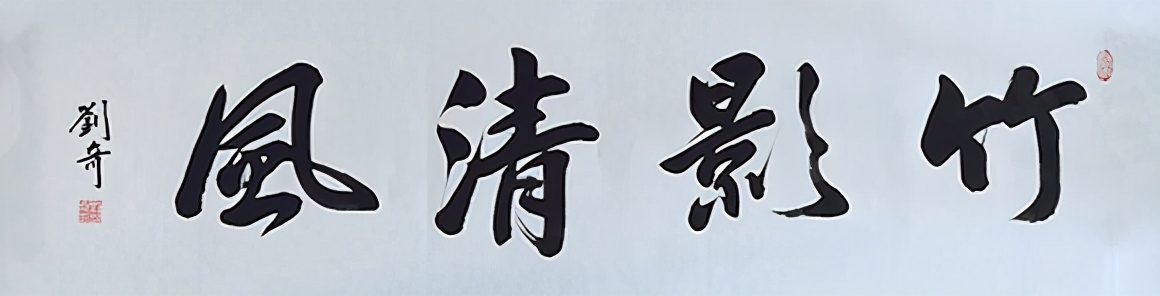 竹影清風
劉奇